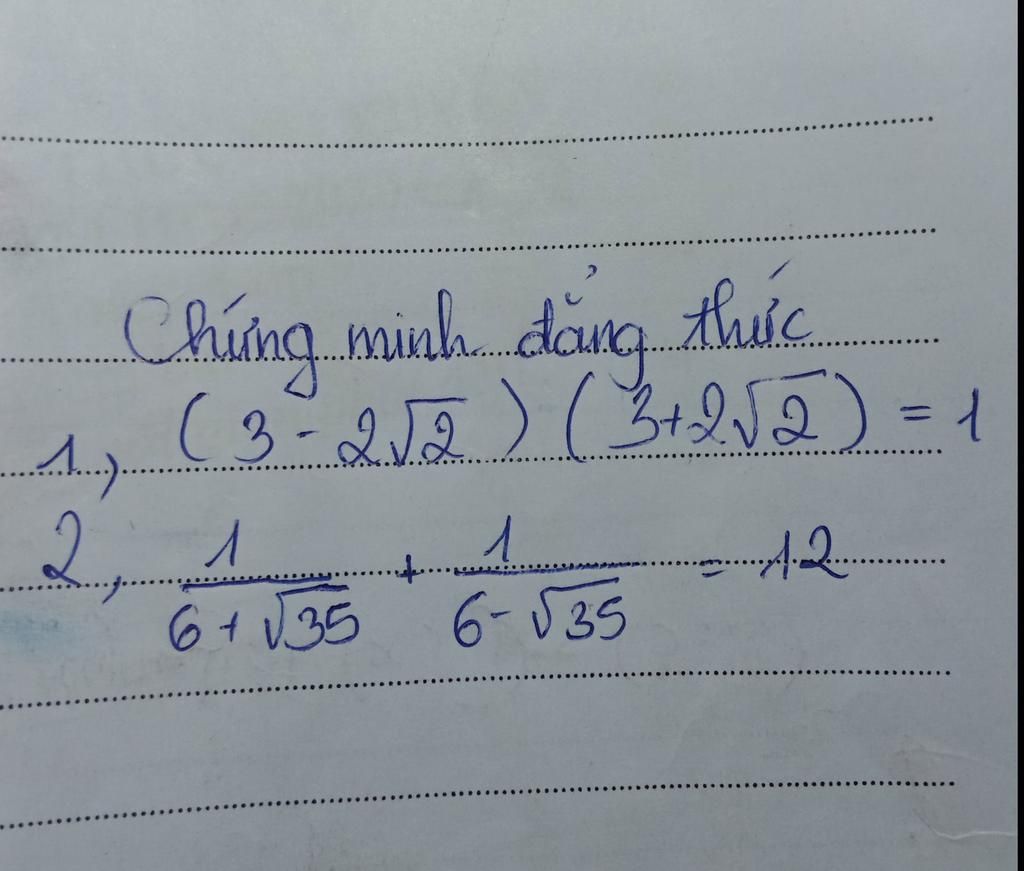 Chứng minh đẳng thức
1, (3 - 2√2) (3+2√2) = 1
2, 1/(6+√35) + 1/(6-√35) = 12